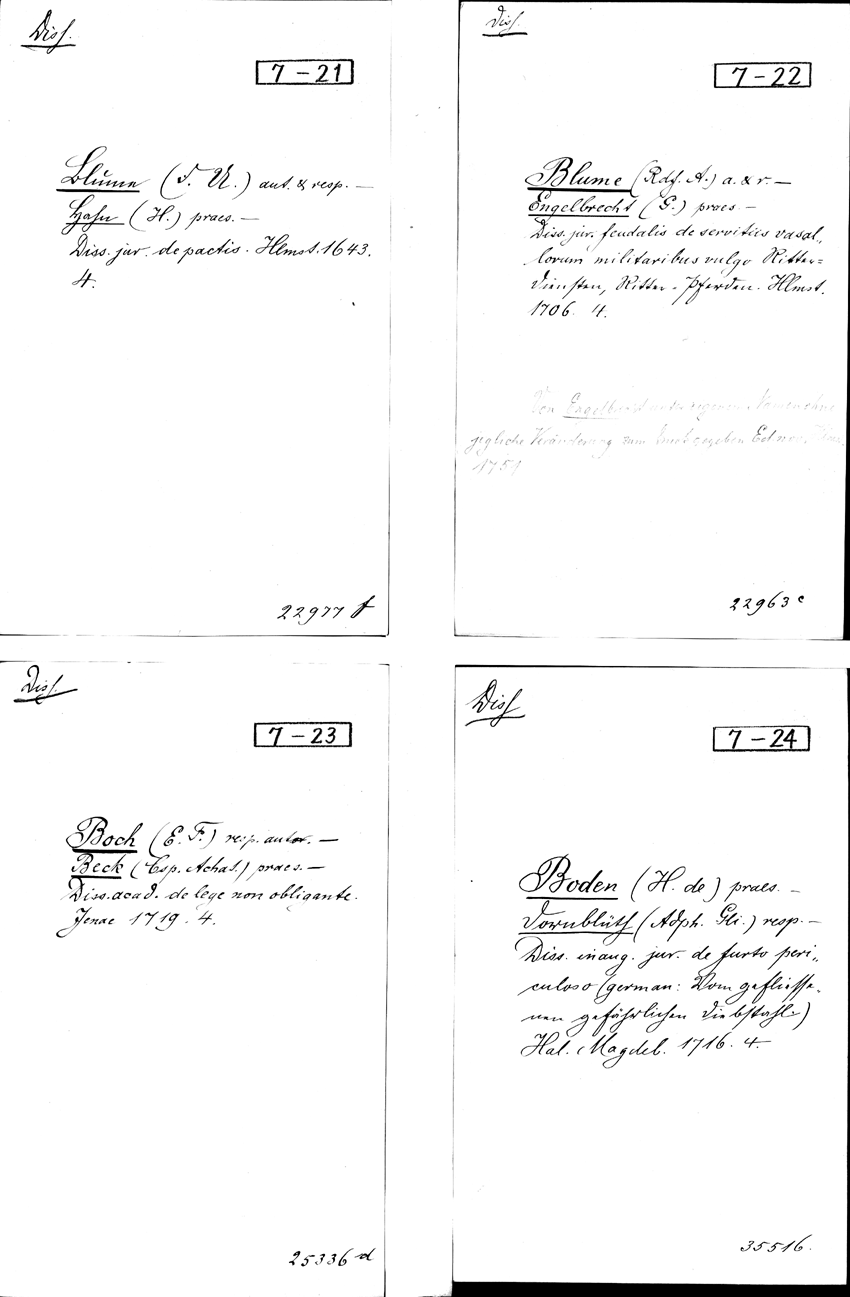 Diss.
7-21
Blume (J. U.) aut. & resp. —
Hahn (H.) praes. —
Diss. jur. de pactis. Hlmst. 1643.
4.
22977 f
Diss.
7-22
Blume (Rdf. A.) a. & r. —
Engelbrecht (G.) praes —
Diss. jur. feudalis de servitiis vasal„
lorum militaribus vulgo Ritter=
Diensten, Ritter-Pferden. Hlmst.
1706. 4.
Von
jegliche Veränderung zum Druck gegeben Ed nov.
1751
22963 c
Diss.
7-23
Boch (E. F.) resp. autor. —
Beck (Csp. Achat.) praes. —
Diss. acad. de lege non obligante.
Jenae 1719. 4.
25336 d
Diss
7-24
Boden (H. de) praes. —
Dornblüth (Adph. Gli.) resp. —
Diss. inaug. jur. de furto peri„
culoso (german: Vom geflisse-
nen gefährlichen Diebstahl.)
Hal. Magdeb. 1716. 4.
35516.